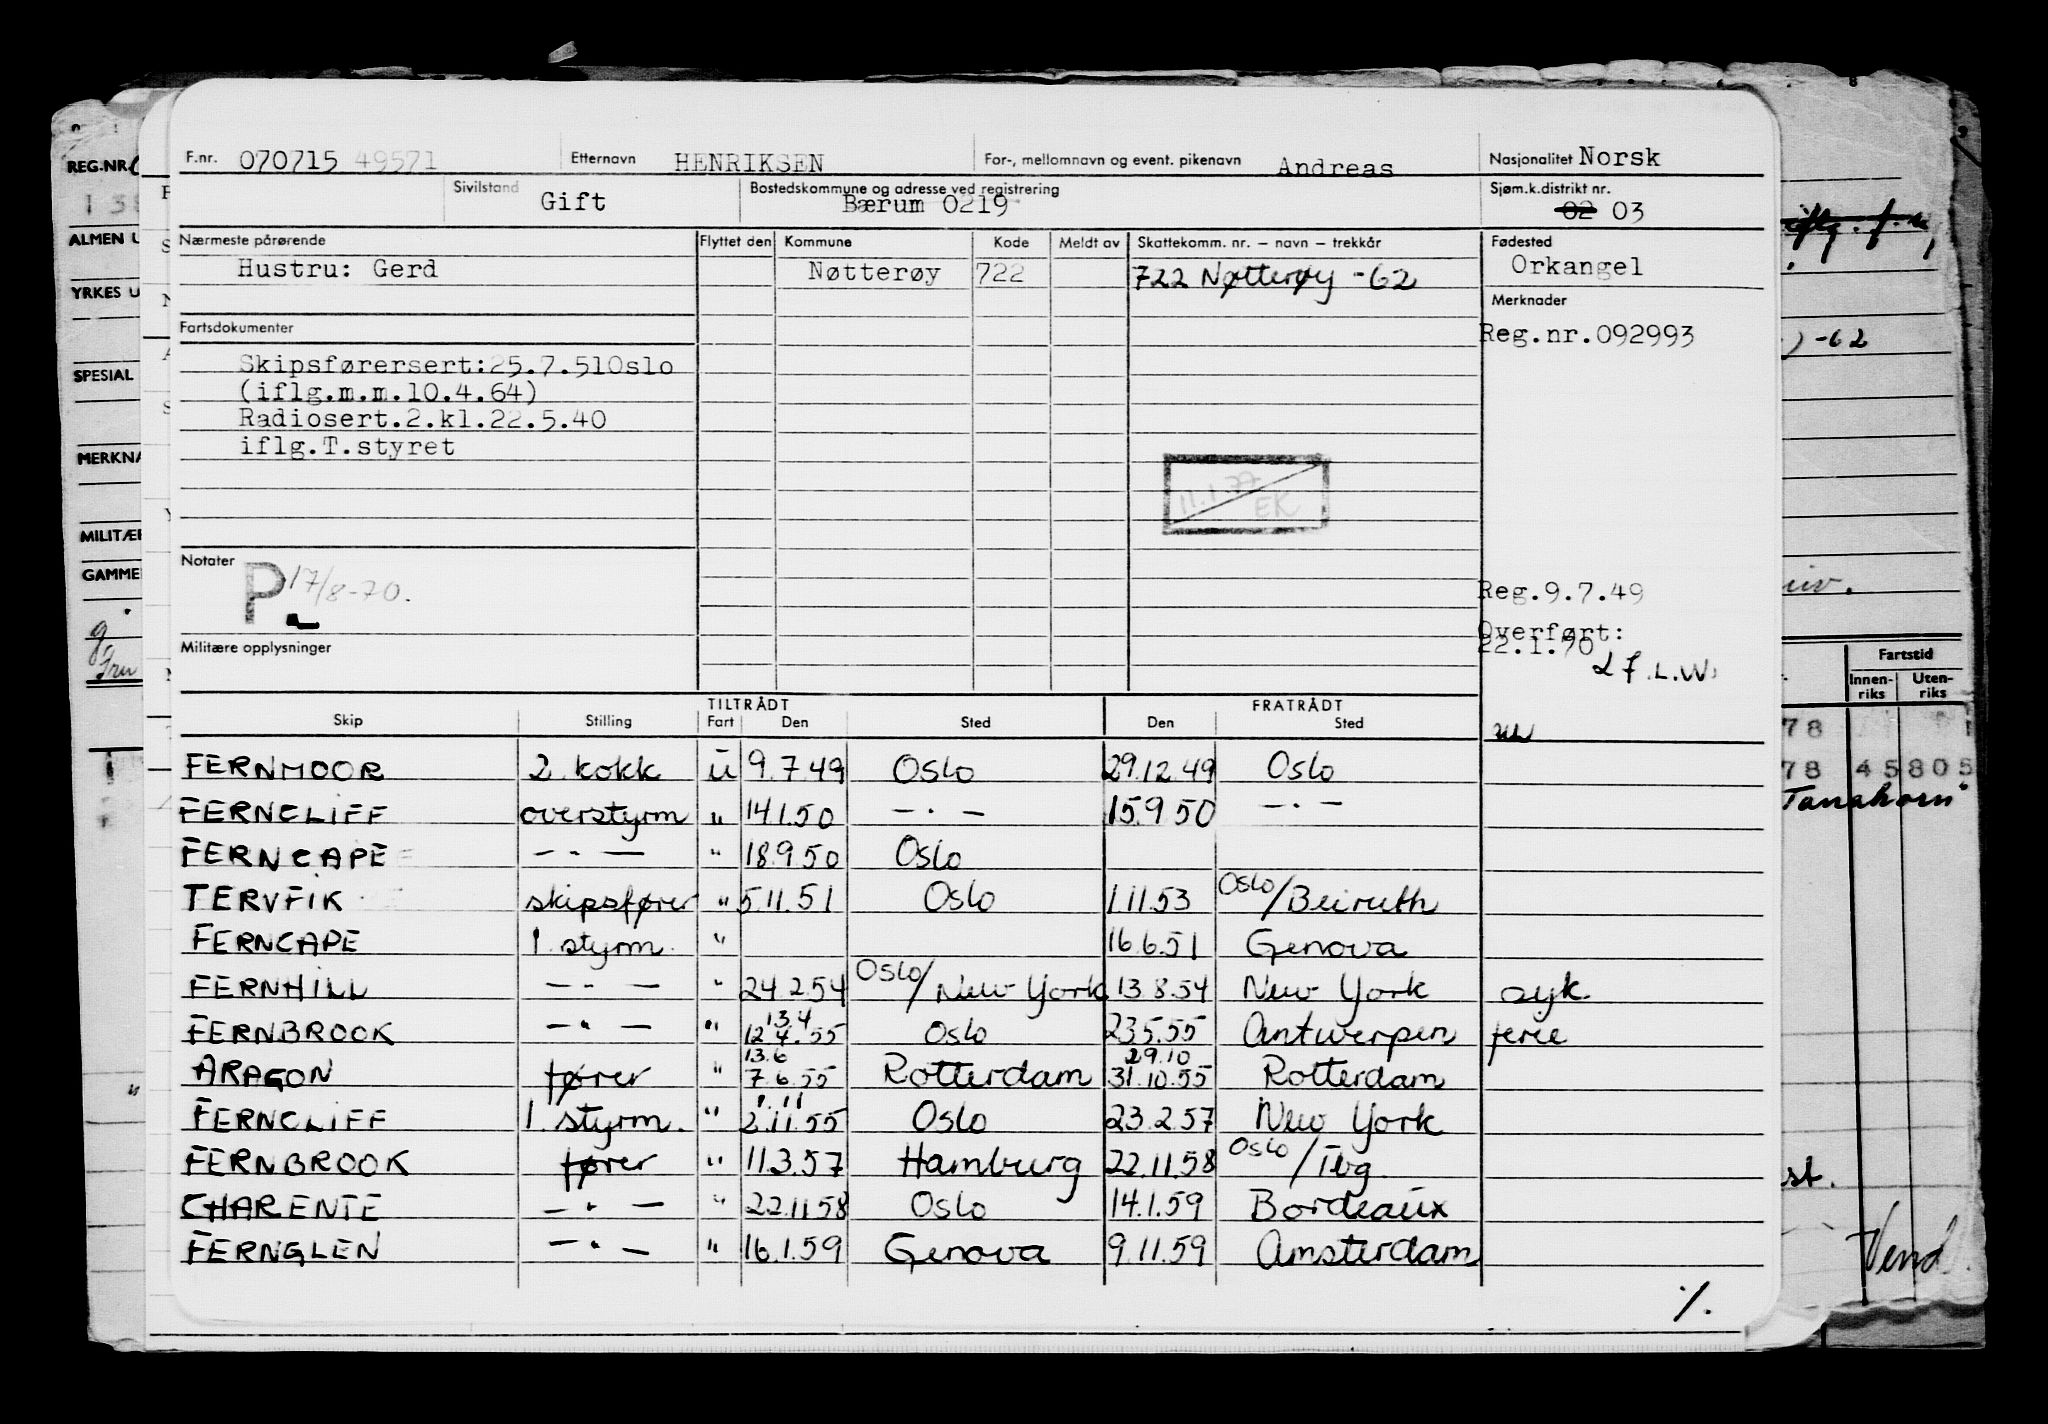 F.nr. 070715 49571 Etternavn HENRIKSEN For-, mellomnavn og event. pikenavn Andreas Nasjonalitet Norsk
Sivilstand Gift Bostedskommune og adresse ved registrering Bærum 0219 Sjøm.k.distrikt nr. 02 03
Nærmeste pårørende Flyttet den Kommune Kode Meldt av Skattekomm. nr. – navn – trekkår Fødested
Hustru: Gerd Nøtterøy 722 722 Nøtterøy -62 Orkangel
Merknader
Fartsdokumenter
Reg.nr.092993
Skipsførersert:25.7.51Oslo
(iflg.m.m.10.4.64)
Radiosert.2.kl.22.5.40
iflg.T.styret
11.1.77
EK
Notater
P 17/8-70.
Reg.9.7.49
Overført:
22.1.70
Militære opplysninger
L.W.
TILTRÅDT FRATRÅDT
Skip Stilling Fart Den Sted Den Sted
FERNMOOR 2. kokk u 9.7.49 Oslo 29.12.49 Oslo
FERNCLIFF overstyrm " 14.1.50 — · — 15.9.50 — · —
FERNCAPE — · — " 18.9.50 Oslo
TERVFIK skipsfører " 5.11.51 Oslo 1.11.53 Oslo/Beiruth
FERNCAPE 1. styrm. " 16.6.51 Genova
FERNHILL — · — " 24.2.54 Oslo/New York 13.8.54 New York syk.
FERNBROOK — · — " 13.4 12.4.55 Oslo 23.5.55 Antwerpen ferie
ARAGON fører " 13.6 7.6.55 Rotterdam 29.10 31.10.55 Rotterdam
FERNCLIFF 1. styrm. " 1.11 2.11.55 Oslo 23.2.57 New York
FERNBROOK fører " 11.3.57 Hamburg 22.11.58 Oslo/Tbg.
CHARENTE — · — " 22.11.58 Oslo 14.1.59 Bordeaux
FERNGLEN — · — " 16.1.59 Genova 9.11.59 Amsterdam
./.
REG.NR.
ALMEN U
YRKES U
SPESIAL
MERKNA
MILITÆR
GAMMEL
-62
Fartstid
Innen-riks Uten-riks
78
78 45805
"Tanahorn"
st.
Vend.